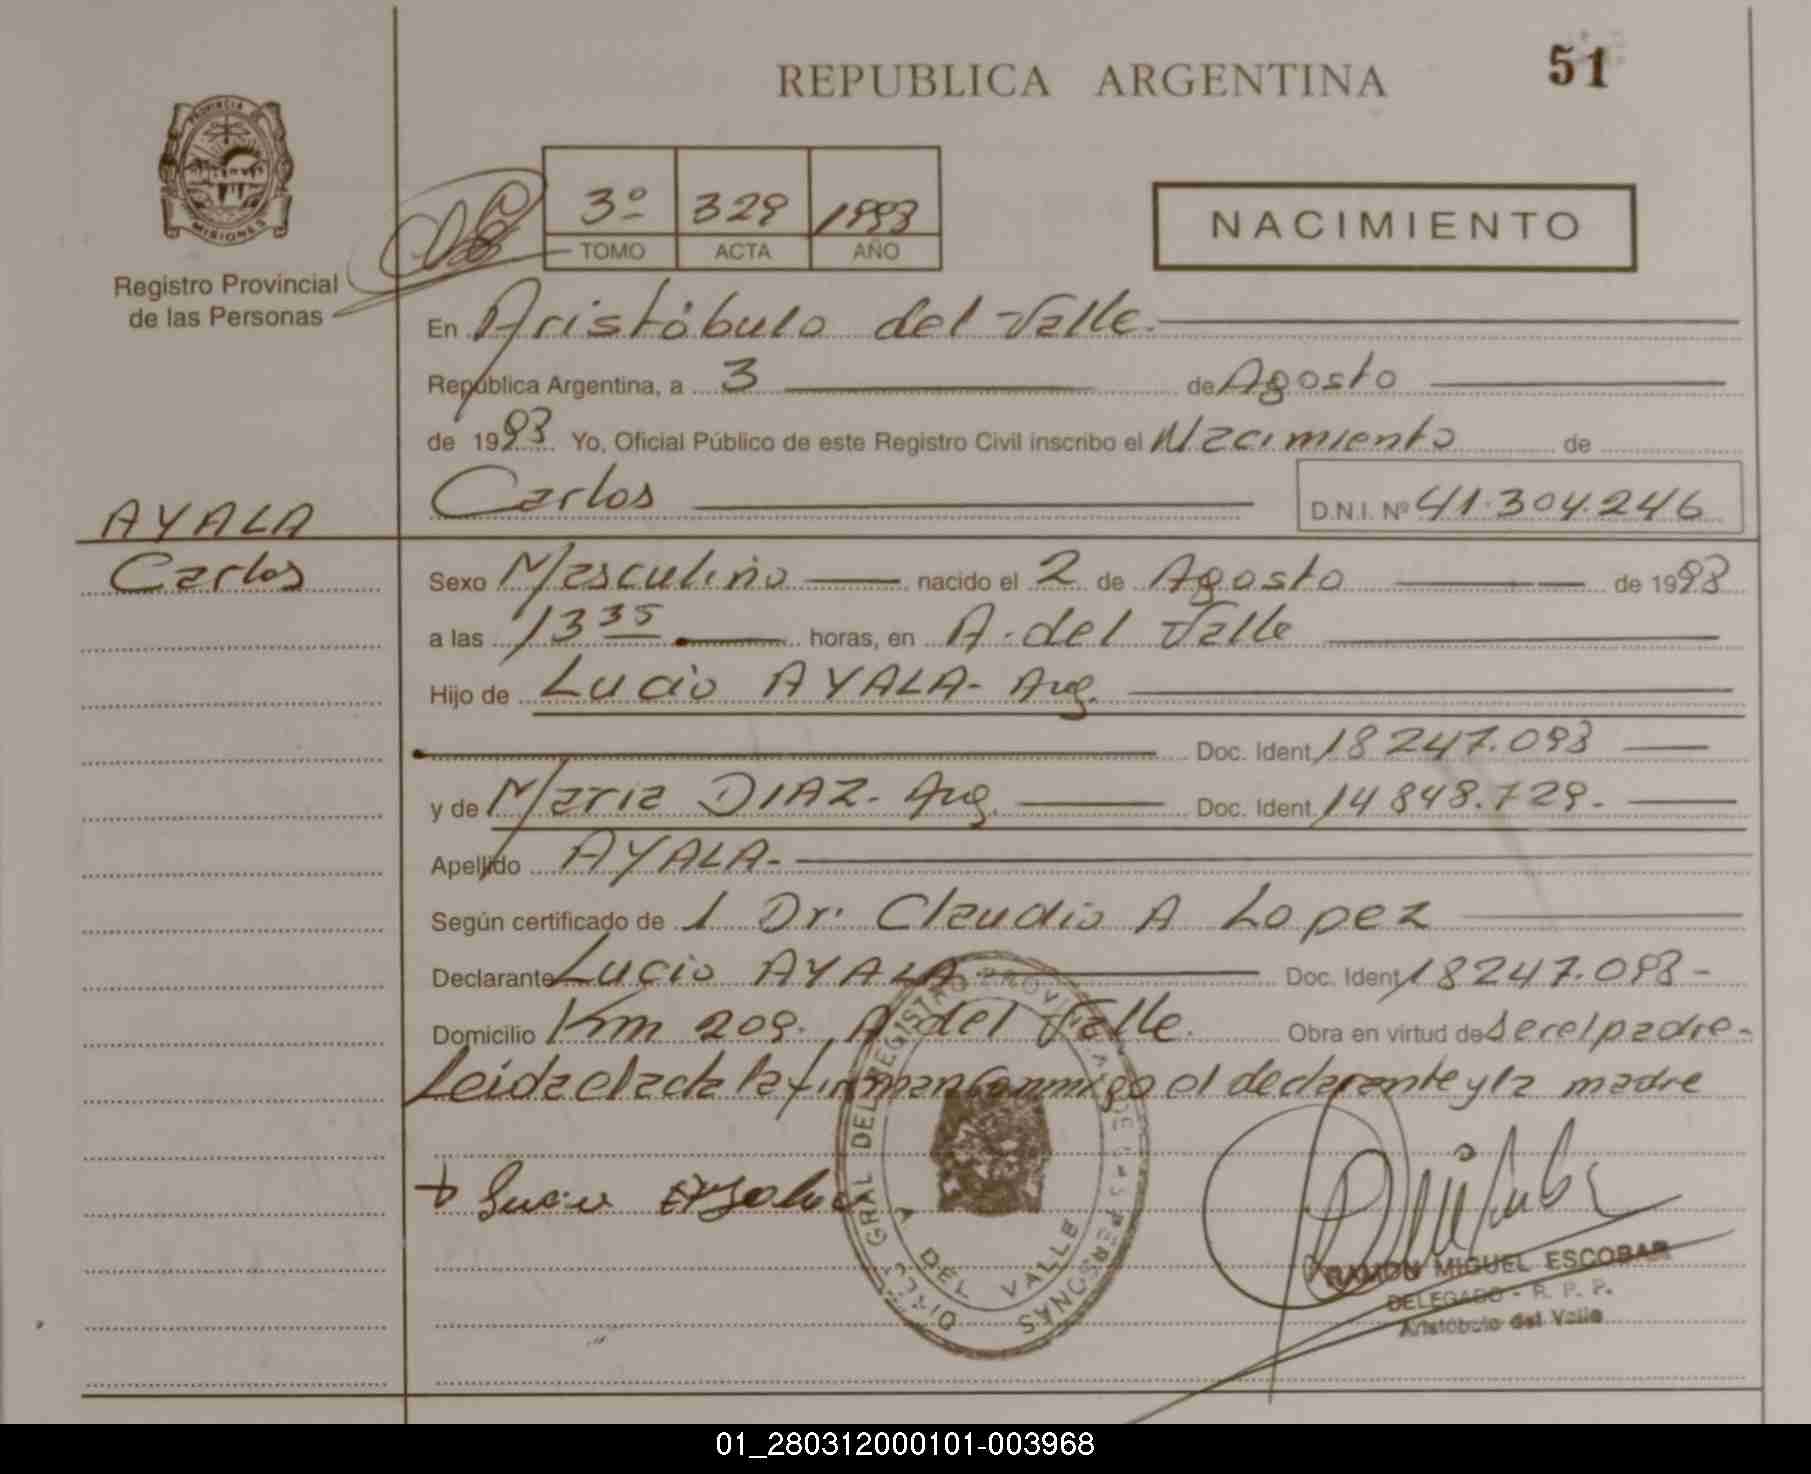 REPUBLICA ARGENTINA
51
PROVINCIA DE
MISIONES
Registro Provincial
de las Personas
3º 329 1993
TOMO ACTA AÑO
NACIMIENTO
En Aristóbulo del Valle.
República Argentina, a 3 de Agosto
de 1993 Yo, Oficial Público de este Registro Civil inscribo el Nacimiento de
Carlos D.N.I. Nº 41.304.246
AYALA
Carlos
Sexo Masculino nacido el 2 de Agosto de 1993
a las 13 35 horas, en A. del Valle
Hijo de Lucio AYALA- Arg.
Doc. Ident. 18247.093
y de Maria DIAZ- Arg. Doc. Ident. 14848.729.
Apellido AYALA-
Según certificado de 1 Dr. Claudio A Lopez
Declarante Lucio AYALA Doc. Ident. 18247.093-
Domicilio Km 209. A. del Valle. Obra en virtud de ser el padre-
Leida el acta la firman conmigo el declarante y la madre
DIREC. GRAL DEL REGISTRO PROVINCIAL DE LAS PERSONAS
A DEL VALLE
RAMON MIGUEL ESCOBAR
DELEGADO - R. P. P.
Aristóbulo del Valle
01_280312000101-003968